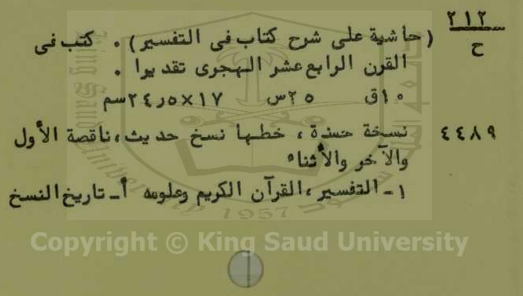 ٢١٢
ح
(حاشية على شرح كتاب فى التفسير) . كتب فى
القرن الرابع عشر الهجرى تقديرا .
١٥ق ٢٥س ١٧×٢٤٫٥سم
٤٤٨٩ نسخة حسنة ، خطها نسخ حديث ، ناقصة الأول
والآخر والأثناء
١ـ التفسير ، القرآن الكريم وعلومه أـ تاريخ النسخ
1957
Copyright © King Saud University